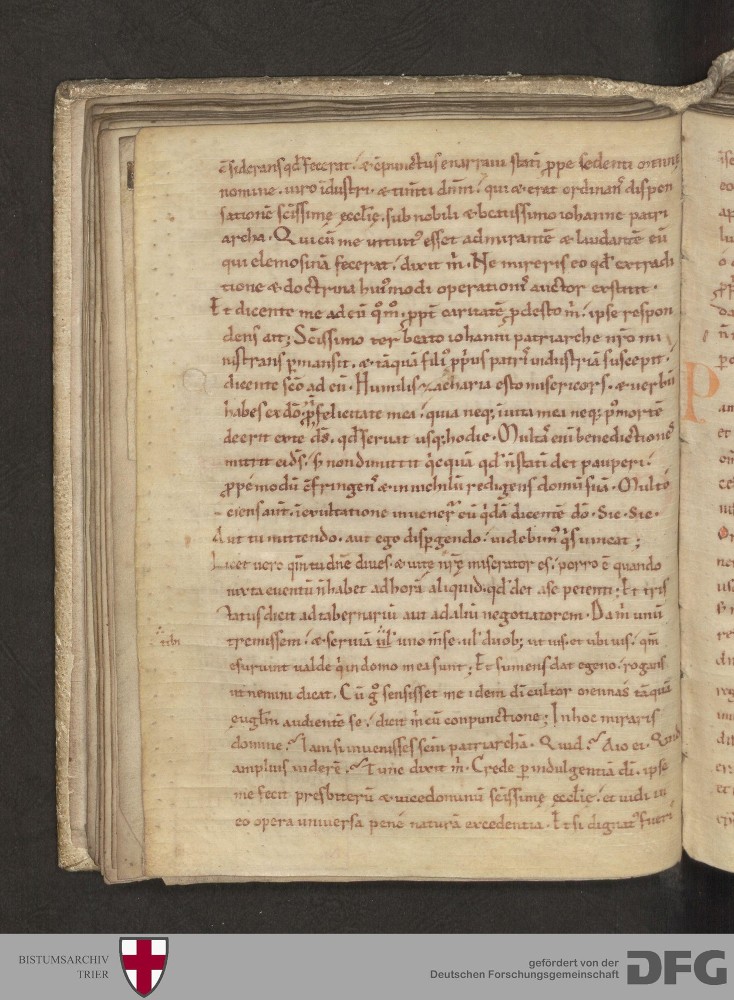 c̄siderans qd̄ fecerat. & c̄punctus enarraui statī ꝓpe sedenti
nomine. uiro īdustri. & timēti dnm̄. qui & erat ordinanſ dispen
satione scīssime ęcclīe. sub nobili & beatissimo iohanne patri
archa. Qui cū me intuitꝰ esset admirantē & laudantē eū
qui elemosinā fecerat. dixit m̄. Ne mireris eo qd̄ ex tradi
tione & doctrina huiꝰmodi operationiſ auctor exstitit.
Et dicente me ad eū qͦmͦ. ꝓpt̄ caritatē ꝓdesto m̄. ipse respon
dens ait; Scīssimo ter beato iohanni patriarche nr̄o mi
nistrans ꝑmansit. & tāquā filiꝰ ꝓpriꝰ patriſ industriā suscepit.
dicente scō ad eū. Humilis zacharia esto misericors. & uerbū
habes ex dō. felicitate mea. quia neq; īuita mea neq; post mortē
deerit ex te dſ. qd̄ seruat usq; hodie. Multaſ enī benedictioneſ
mittit ei dſ. sꝫ non dimittit qͥcquā qd̄ n̄ statī det pauperi.
ꝓpemodū c̄fringenſ & in nichilū redigens domū suā. Multo
ciens aut̄. ī exultatione inuener̄ eū qͥdā dicentē dō. Sic. Sic.
Aut tu mittendo. aut ego dispergendo. uidebimꝰ qͥs uincat;
Licet uero qm̄ tu dn̄e diues. & uitę nr̄ę miserator es. porro ē quando
iuxta euentū n̄ habet ad horā aliquid. qd̄ det a se petenti; Et tris
tatus dicit ad tabernariū aut ad aliū negotiatorem. Da m̄ unū
tremissem. & seruiā uno mn̄se. ul̄ duob; ut uis. & ubi uis. qm̄
tibi
esuriunt ualde qͥ in domo mea sunt; Et sumens dat egeno. rogans
ut nemini dicat. Cū gͦ sensisset me idem dī cultor tāquā
ęuglm̄ audiente se. dicit m̄ cū conpunctione; In hoc miraris
domine. Iam si inuenisses scm̄ patriarchā. Quid. Aio ei. Quid
amplius uiderē. Tunc dixit m̄. Crede ꝑ indulgentiā dī. ipse
me fecit presbiterū & uicedominū scīssime ęcclīe. et uidi in
eo opera uniuersa pene naturā excedentia. Et si dignatꝰ fueri
BISTUMSARCHIV
TRIER
gefördert von der
Deutschen Forschungsgemeinschaft
DFG